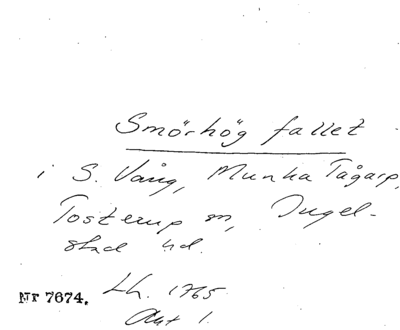 Smörhög fallet
i S. Vång, Munka Tågarp,
Tosterup sn, Ingel-
stad hd.
Lh. 1765
Nr 7674.
Akt 1.